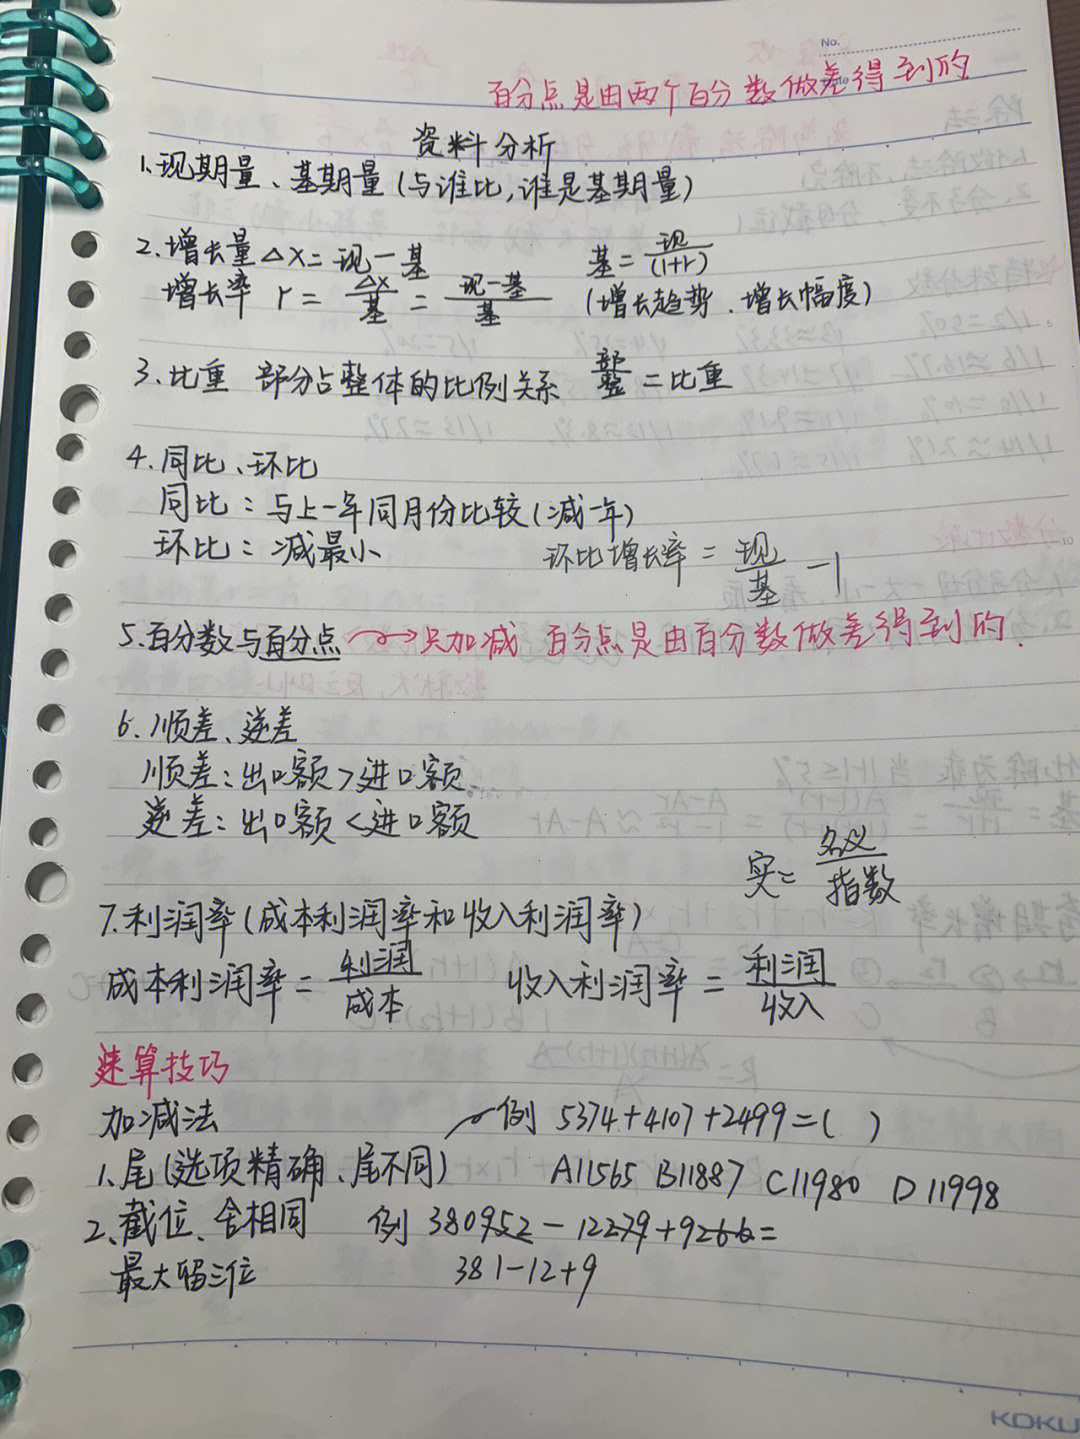 No.
Date
百分点是由两个百分数做差得到的
资料分析
1.现期量、基期量(与谁比,谁是基期量)
2.增长量△x=现-基 基=现/(1+r)
增长率 r=△x/基=现-基/基 (增长趋势、增长幅度)
3.比重 部分占整体的比例关系 部/整=比重
4.同比、环比
同比:与上一年同月份比较(减一年)
环比:减最小 环比增长率=现/基-1
5.百分数与百分点 → 只加减 百分点是由百分数做差得到的.
6.顺差、逆差
顺差:出口额>进口额
逆差:出口额<进口额
实=名义/指数
7.利润率(成本利润率和收入利润率)
成本利润率=利润/成本 收入利润率=利润/收入
速算技巧
加减法 例 5374+4107+2499=( )
1.尾(选项精确、尾不同) A11565 B11887 C11980 D11998
2、截位、舍相同 例 380952-12279+9266=
最大留三位 381-12+9
KOKU